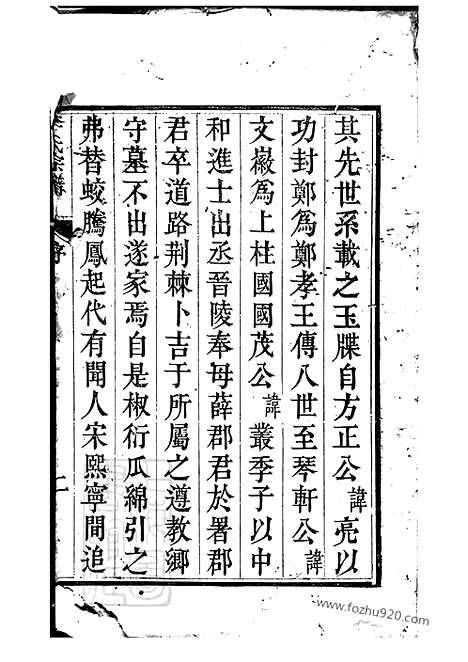 其先世系載之玉牒自方正公諱亮以
功封鄭爲鄭孝王傳八世至琴軒公諱
文嶽爲上柱國國茂公諱叢季子以中
和進士出丞晉陵奉母薛郡君於署郡
君卒道路荆棘卜吉于所屬之遵教鄉
守墓不出遂家焉自是椒衍瓜綿引之
弗替蛟騰鳳起代有聞人宋熙寧間追
氏宗譜
序
www.fozhu920.com